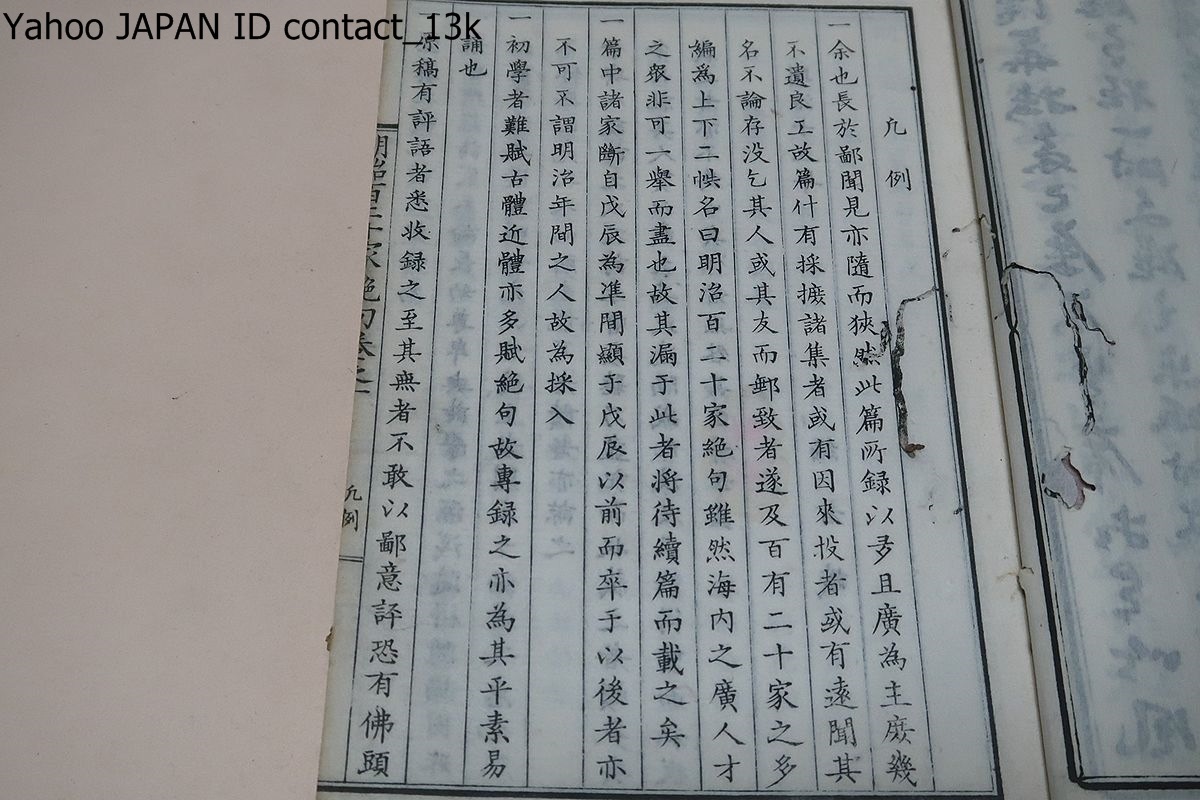 Yahoo JAPAN ID contact_13k
凢例
一余也長於鄙聞見亦隨而狹然此篇所録以多且廣為主庶幾
不遺良工故篇什有採摭諸集者或有因來投者或有遠聞其
名不論存没乞其人或其友而郵致者遂及百有二十家之多
編爲上下二帙名曰明治百二十家絶句雖然海内之廣人才
之衆非可一舉而盡也故其漏于此者将待續篇而載之矣
一篇中諸家斷自戊辰為準間顯于戊辰以前而卒于以後者亦
不可不謂明治年間之人故為採入
一初學者難賦古體近體亦多賦絶句故專録之亦為其平素易
誦也
一原稿有評語者悉收録之至其無者不敢以鄙意評恐有佛頭
明治百二十家絶句卷之一
凢例